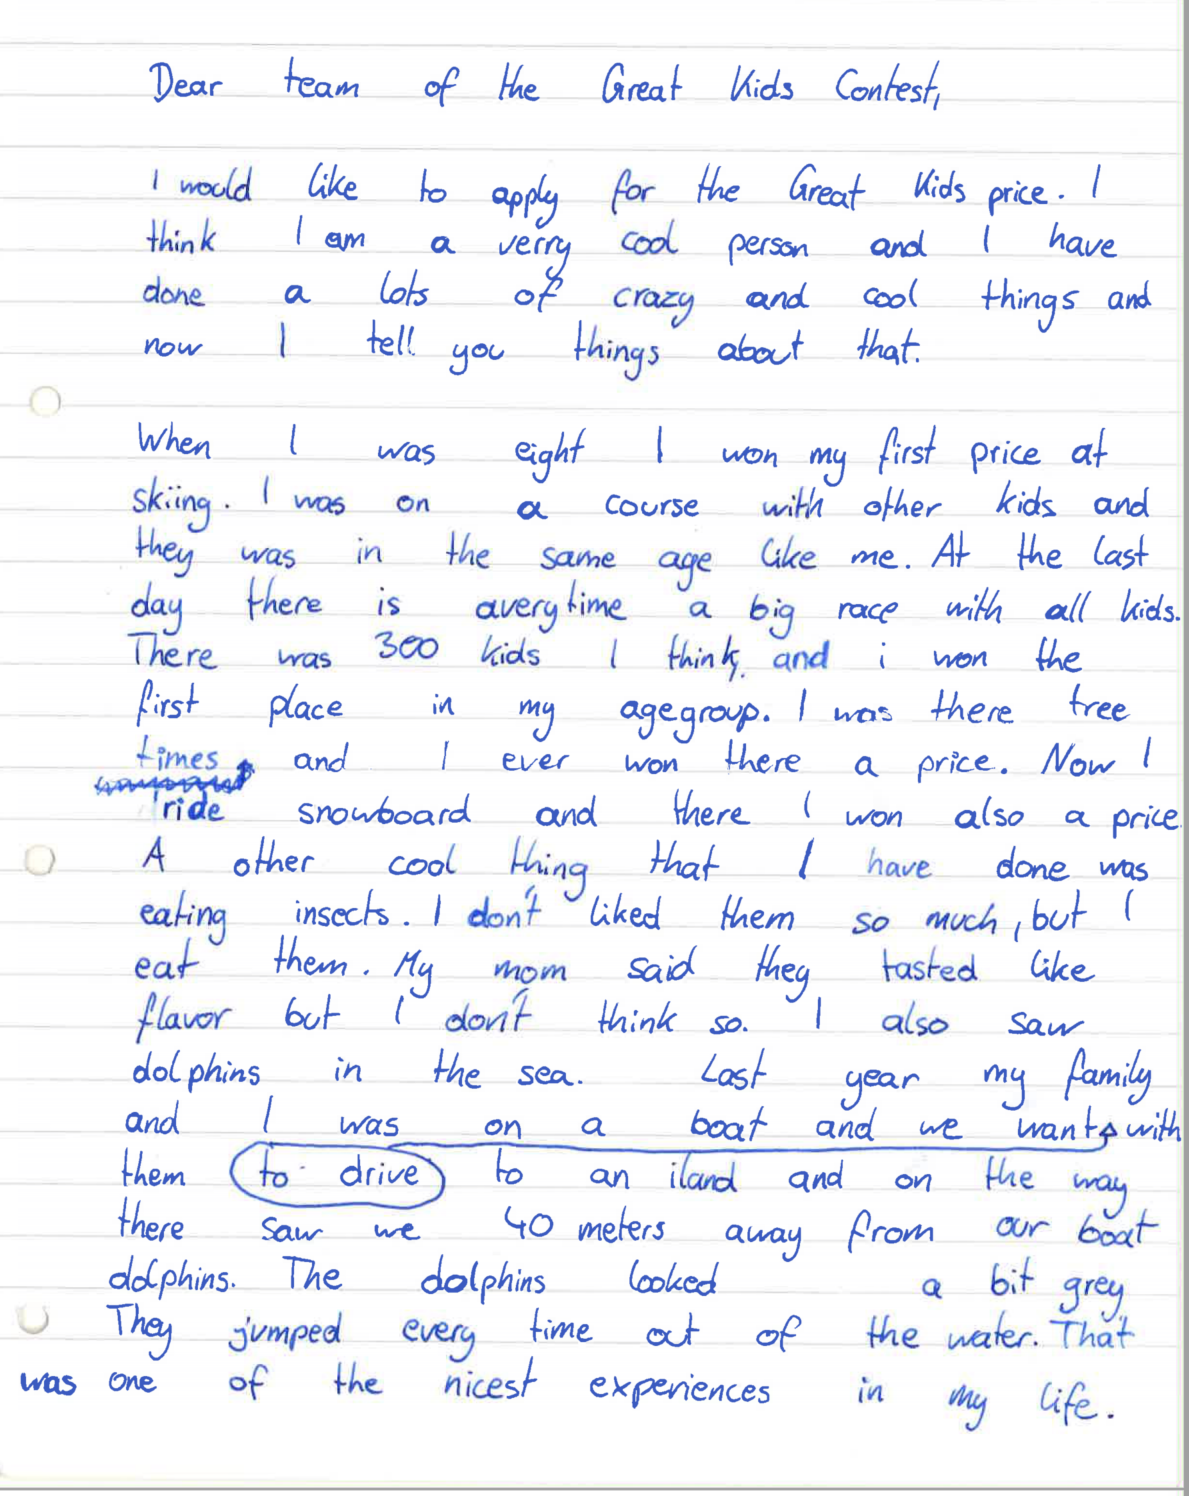 Dear team of the Great Kids Contest,
I would like to apply for the Great Kids price. I
think I am a verry cool person and I have
done a lots of crazy and cool things and
now I tell you things about that.
When I was eight I won my first price at
skiing. I was on a course with other kids and
they was in the same age like me. At the last
day there is averytime a big race with all kids.
There was 300 kids I think, and i won the
first place in my agegroup. I was there tree
times and I ever won there a price. Now I
ride snowboard and there I won also a price.
A other cool thing that I have done was
eating insects. I don't liked them so much, but I
eat them. My mom said they tasted like
flavor but I don't think so. I also saw
dolphins in the sea. Last year my family
and I was on a boat and we want with
them to drive to an iland and on the way
there saw we 40 meters away from our boat
dolphins. The dolphins looked a bit grey
They jumped every time out of the water. That
was one of the nicest experiences in my life.